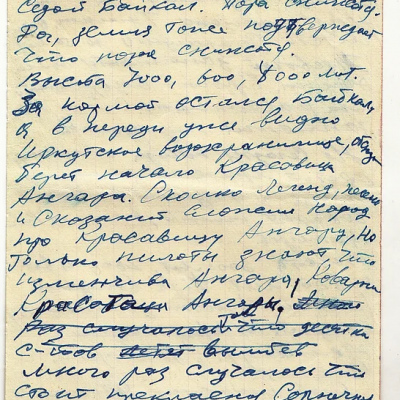 Седой Байкал. Пора снижать.
Да, земля тоже подтверждает
что пора снижать.
Высота 7000, 600, 8000 мет.
За кормой остался Байкал,
а в переди уже видно
Иркутское водохранилище, откуда
берет начало Красавица
Ангара. Сколко легенд, песен
и Сказаний сложил народ
про Красавицу Ангару, Но
только пилоты знают, что
изменчива Ангара, Коварна
Красота Ангары,
Раз случалось что
с-тов летят вылетев
много раз случалось что
стоит прекрасная Солнечная